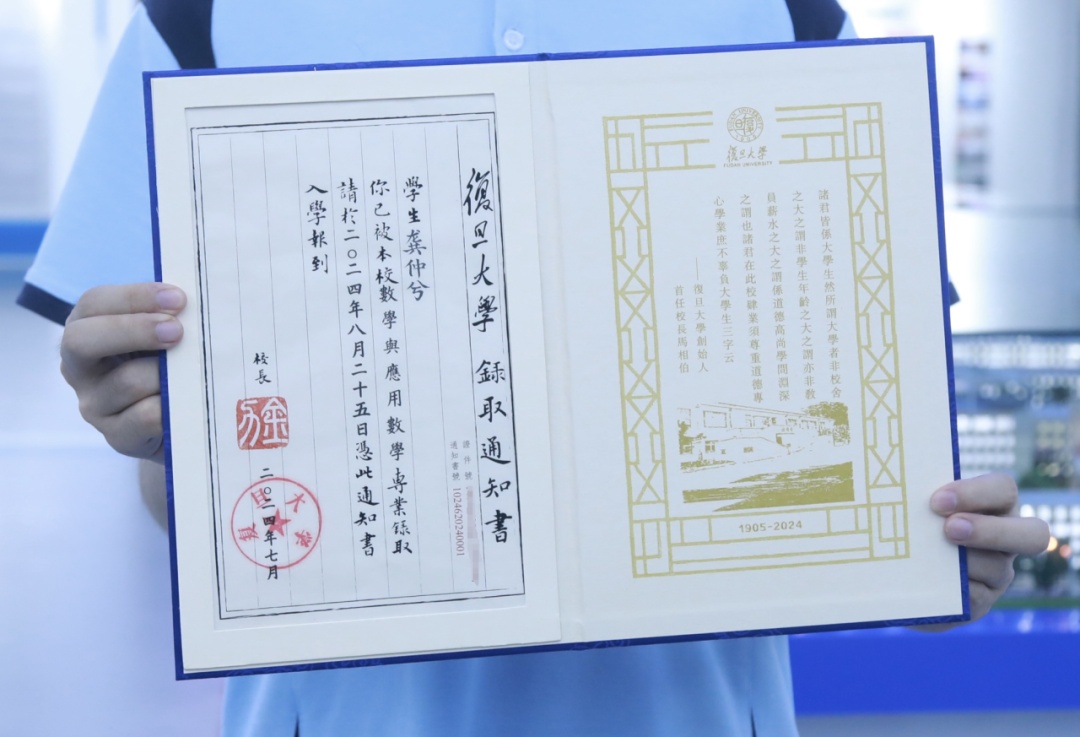 復旦大學 錄取通知書
證件號
通知書號 1024620240001
學生龚仲兮
你已被本校數學與應用數學專業錄取
請於二〇二四年八月二十五日憑此通知書
入學報到
校長
二〇二四年七月
復旦大學
復旦大學
FUDAN UNIVERSITY
諸君皆係大學生然所謂大學者非校舍
之大之謂非學生年齡之大之謂亦非教
員薪水之大之謂係道德高尚學問淵深
之謂也諸君在此校肄業須尊重道德專
心學業庶不辜負大學生三字云
——復旦大學創始人
首任校長馬相伯
1905-2024